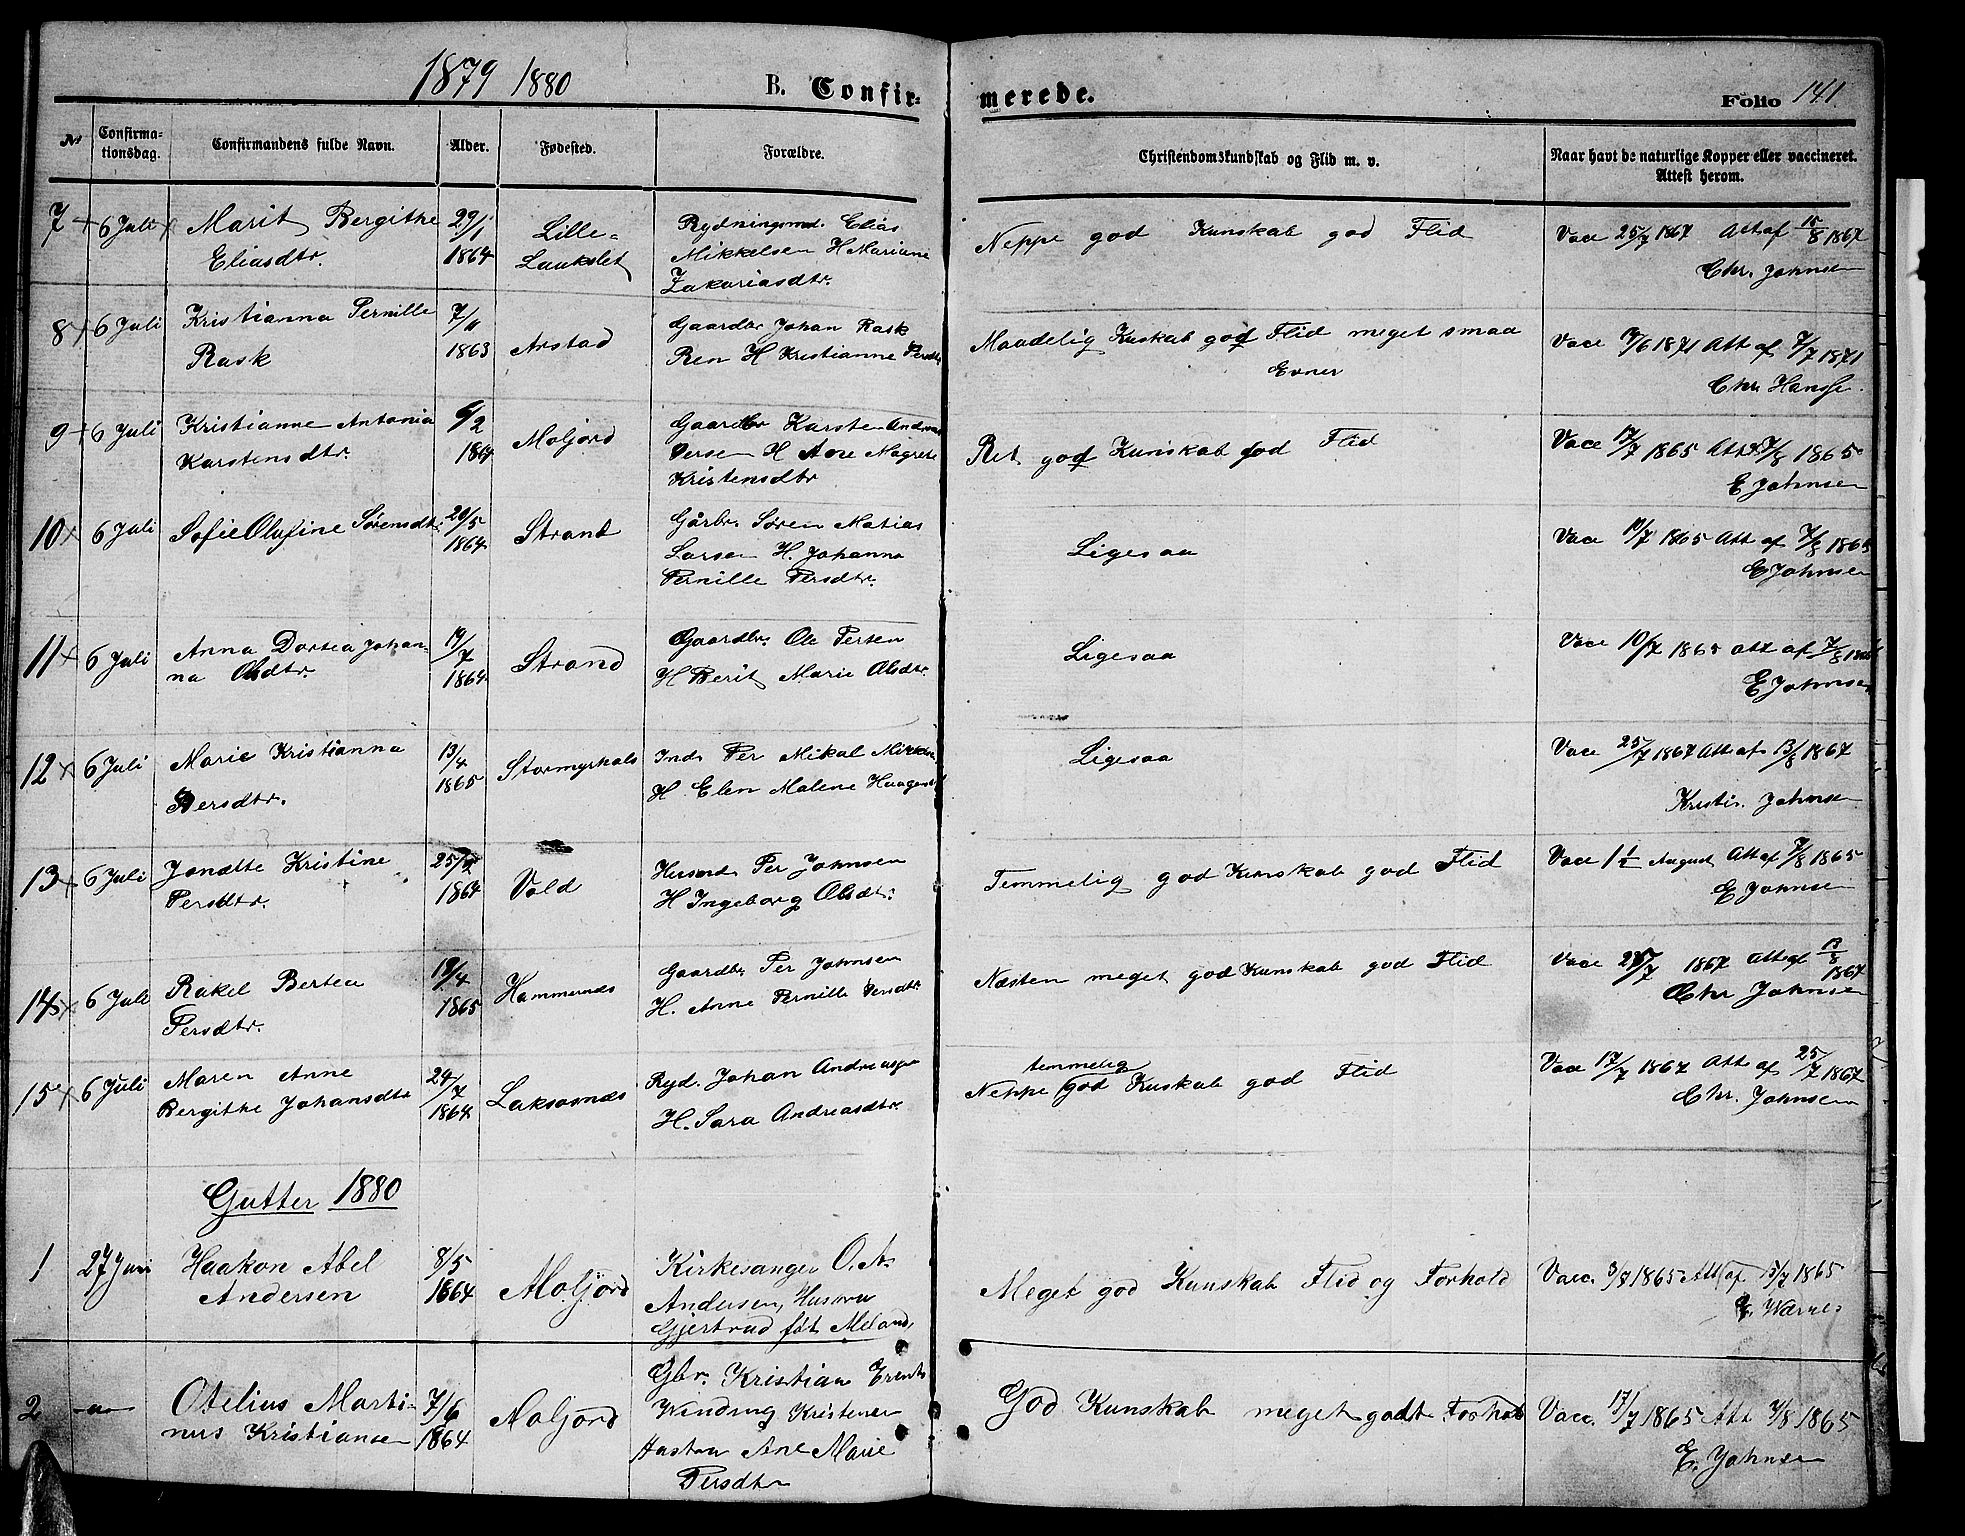 1879 1880 B. Confir- merede. Folio 141
No Confirma-tionsdag. Confirmandens fulde Navn. Alder. Fødested. Forældre. Christendomskundskab og Flid m. v. Naar havt de naturlige Kopper eller vaccineret. Attest herom.
7 6 Juli Marit Bergithe 29/1 Lille- Rydningsmd. Elias Neppe god Kunskab god Flid Vacc 25/7 1867 Att af 15/8 1867
Eliasdtr. 1864 Laukslet Mikkelsen H Mariane Chr. Johnsen
Zakariasdtr.
8 6 Juli Kristianna Pernille 7/11 Arstad Gaardbr Johan Rask Maadelig Kuskab god Flid meget smaa Vacc 19/6 1871 Att af 7/7 1871
Rask 1863 Ren H Kristianne Persdtr Evner Chr Hanssen
9 6 Juli Kristianne Antonia 6/2 Moljord Gaardbr Karsten Andreas Ret god Kunskab god Flid Vacc 17/7 1865 Att 7/8 1865
Karstensdtr. 1864 H Ane Magrete E Johnsen
Kristensdtr
10 6 Juli Sofie Olufine Sørensdtr. 20/5 Strand Gårbr. Søren Matias Ligesaa Vacc 10/7 1865 Att af 7/8 1865
1864 Larsen H. Johanna E Johnsen
Pernille Persdtr.
11 6 Juli Anna Dortea Johan- 19/7 Strand Gaardbr. Ole Persen Ligesaa Vacc 10/7 1865 Att af 7/8 1865
na Olsdtr. 1864 H Berit Marie Olsdtr. E Johnsen
12 6 Juli Marie Kristianna 13/4 Stormyrhals Inds Per Mikal Ligesaa Vacc 25/7 1867 Att af 13/8 1867
Persdtr. 1865 H Elen Malene Kristi. Johnsen
13 6 Juli Jonette Kristine Vold Husmd Per Johnsen Temmelig god Kunskab god Flid Vacc 1 August Att af 7/8 1865
Persdtr. 1864 H Ingeborg Olsdtr. E Johnsen
14 6 Juli Rakel Bertea 19/4 Hammernes Gaardbr Per Johnsen Næsten meget god Kunskab god Flid Vacc 25/7 1867 Att af 13/8 1867
Persdtr. 1865 H. Anne Pernille Persdtr. Chr Johnsen
15 6 Juli Maren Anne 24/7 Laksosnes Ryd. Johan Andreasen temmelig Vacc 17/7 1867 Att af 25/7 1867
Bergithe Johansdtr 1864 H. Sara Andreasdtr. Neppe god Kuskab god Flid Chr. Johnsen
Gutter 1880
1 27 Juni Haakon Abel 8/5 Moljord Kirkesanger O. A. Meget god Kunskab Flid og Forhold Vacc. 3/8 1865 Att af 15/7 1865
Andersen 1864 Andersen, Hustru Værnes
Gjertrud føt Meland
2 —"— Otelius Marti- 7/6 Moljord Gbr. Kristian Erents God Kunskab meget godt Forhold Vacc. 17/7 1865 Att 7/8 1865
nus Kristiansen 1864 Winding Kristensen E. Johnsen
Hustru Ane Marie
Persdtr